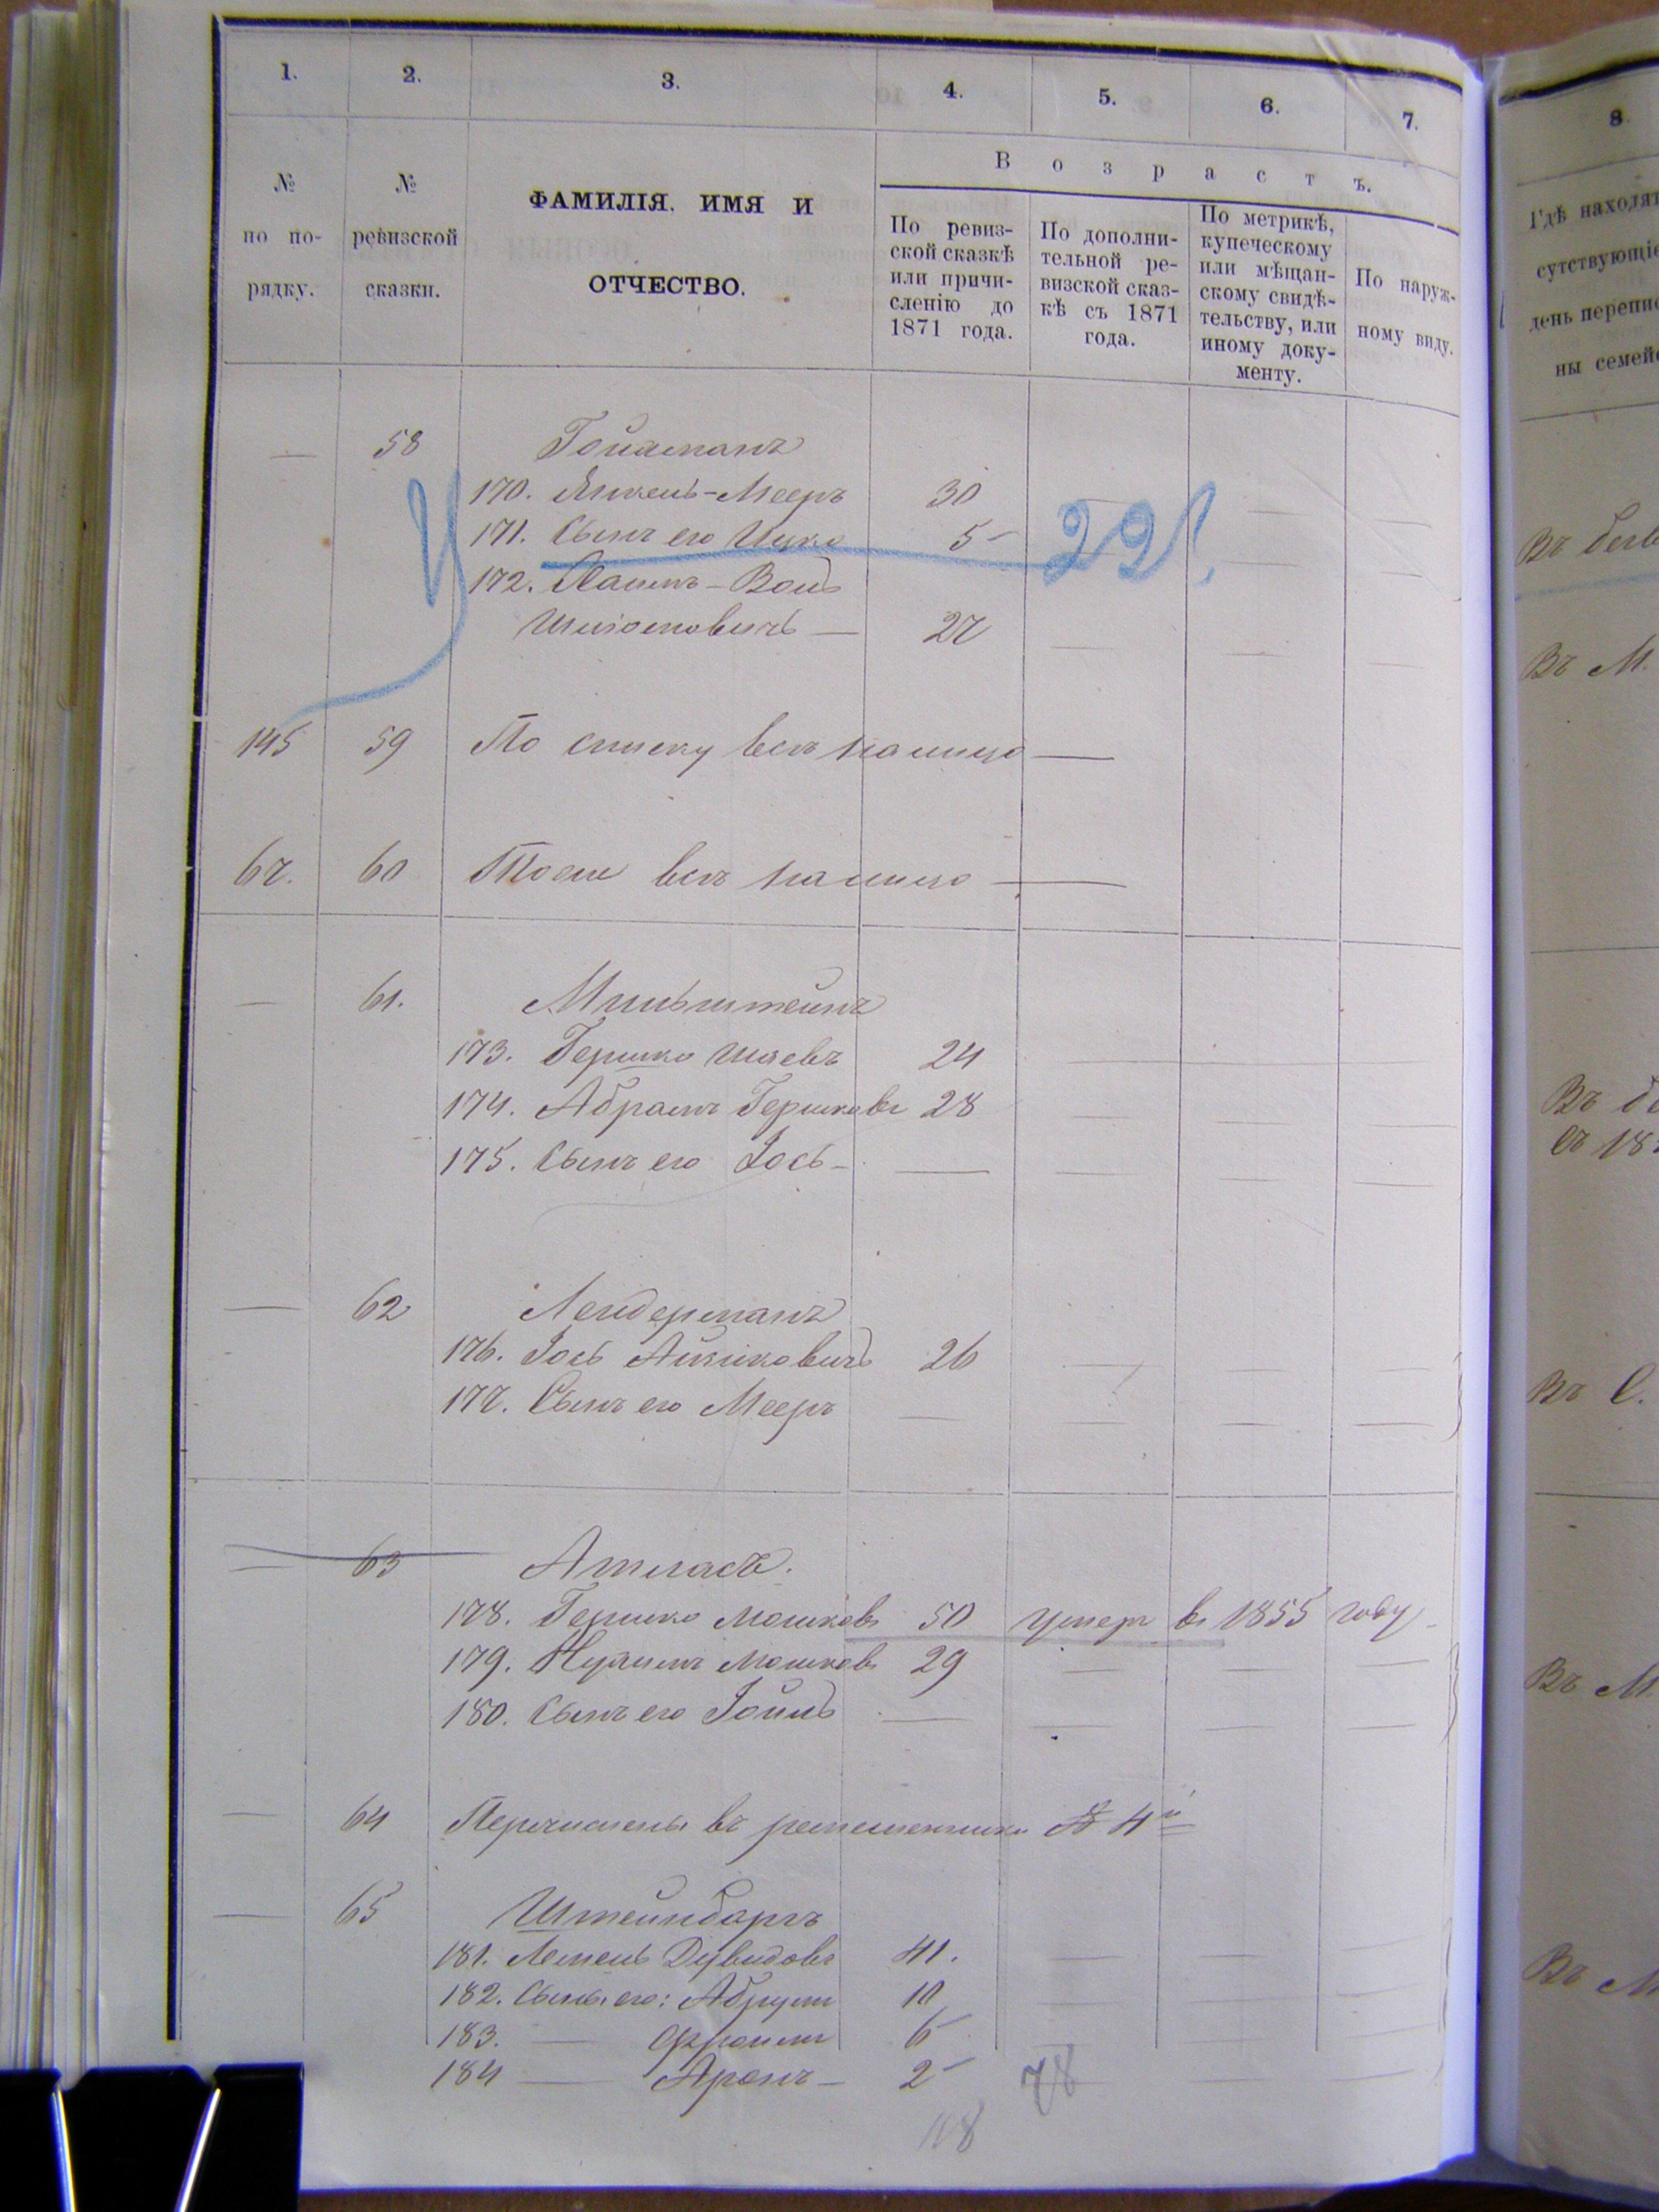 1. 2. 3. 4. 5. 6. 7.
В о з р а с т ъ.
№ по по-рядку.
№ ревизской сказки.
ФАМИЛІЯ, ИМЯ И
ОТЧЕСТВО.
По ревиз-
ской сказкѣ
или причи-
сленію до
1871 года.
По дополни-
тельной ре-
визской сказ-
кѣ съ 1871
года.
По метрикѣ,
купеческому
или мѣщан-
скому свидѣ-
тельству, или
иному доку-
менту.
По наруж-
ному виду.
— 58
170. Янкель-Мееръ 30 — — —
171. Сынъ его Ицко 5 — — —
172. Хаимъ-Вольф
27 — — —
22
145 59 По списку всѣ налицо —
67. 60 Тоже всѣ налицо —
— 61. Мильштейнъ
173. Гершко Шаевъ 24 — — —
174. Абрамъ Гершковъ 28 — — —
175. Сынъ его Іось — — — — —
— 62 Лендерманъ
176. Іось Айзиковичъ 26 — — —
177. Сынъ его Мееръ — — — —
— 63 Атласъ.
178. Гершко Мошковъ 50 умеръ въ 1855 году
179. Нухимъ Мошковъ 29 — — —
180. Сынъ его Іойль — — — —
— 64 Перечислены въ № 4й
— 65 Штейнбаргъ
181. Лемель Дувидовъ 41. — — —
182. Сынъ его: Абрумъ 10 — — —
183. — Фроимъ 6 — — —
184 — Аронъ — 2 — — —
78
108
8
Гдѣ находят
сутствующіе
день перепис
ны семей
Въ
Въ М.
Въ
Въ С.
Въ М.
Въ М